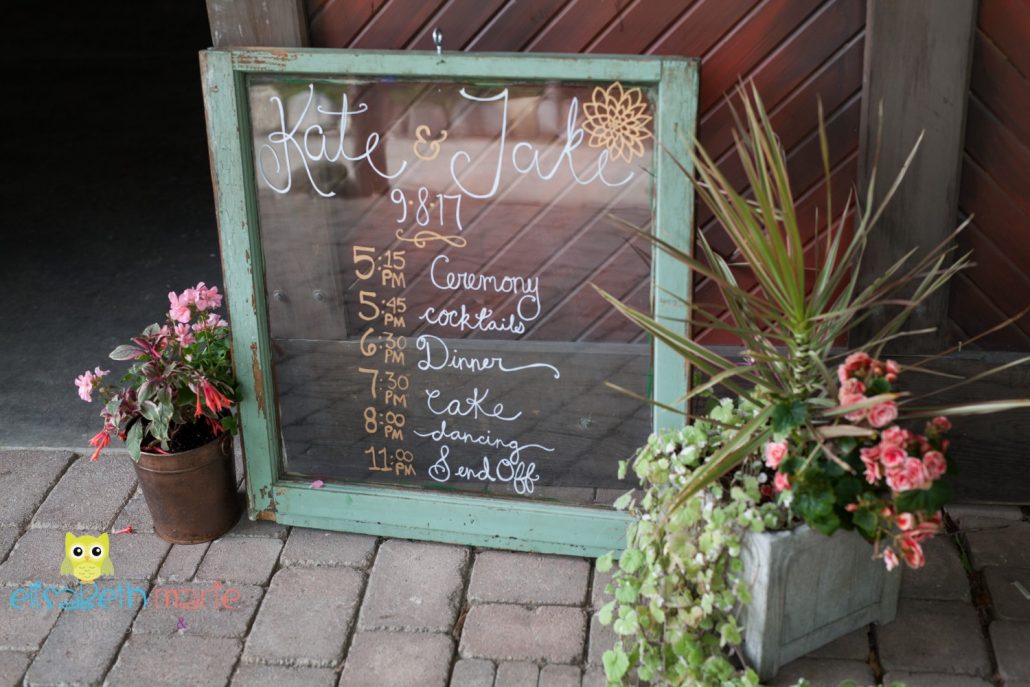 Kate & Jake
9.8.17
5:15 PM Ceremony
5:45 PM cocktails
6:30 PM Dinner
7:30 PM Cake
8:00 PM dancing
11:00 PM Send Off
elisabeth marie
&